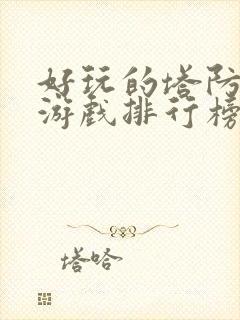 好玩的塔防
游戏排行榜
塔哈